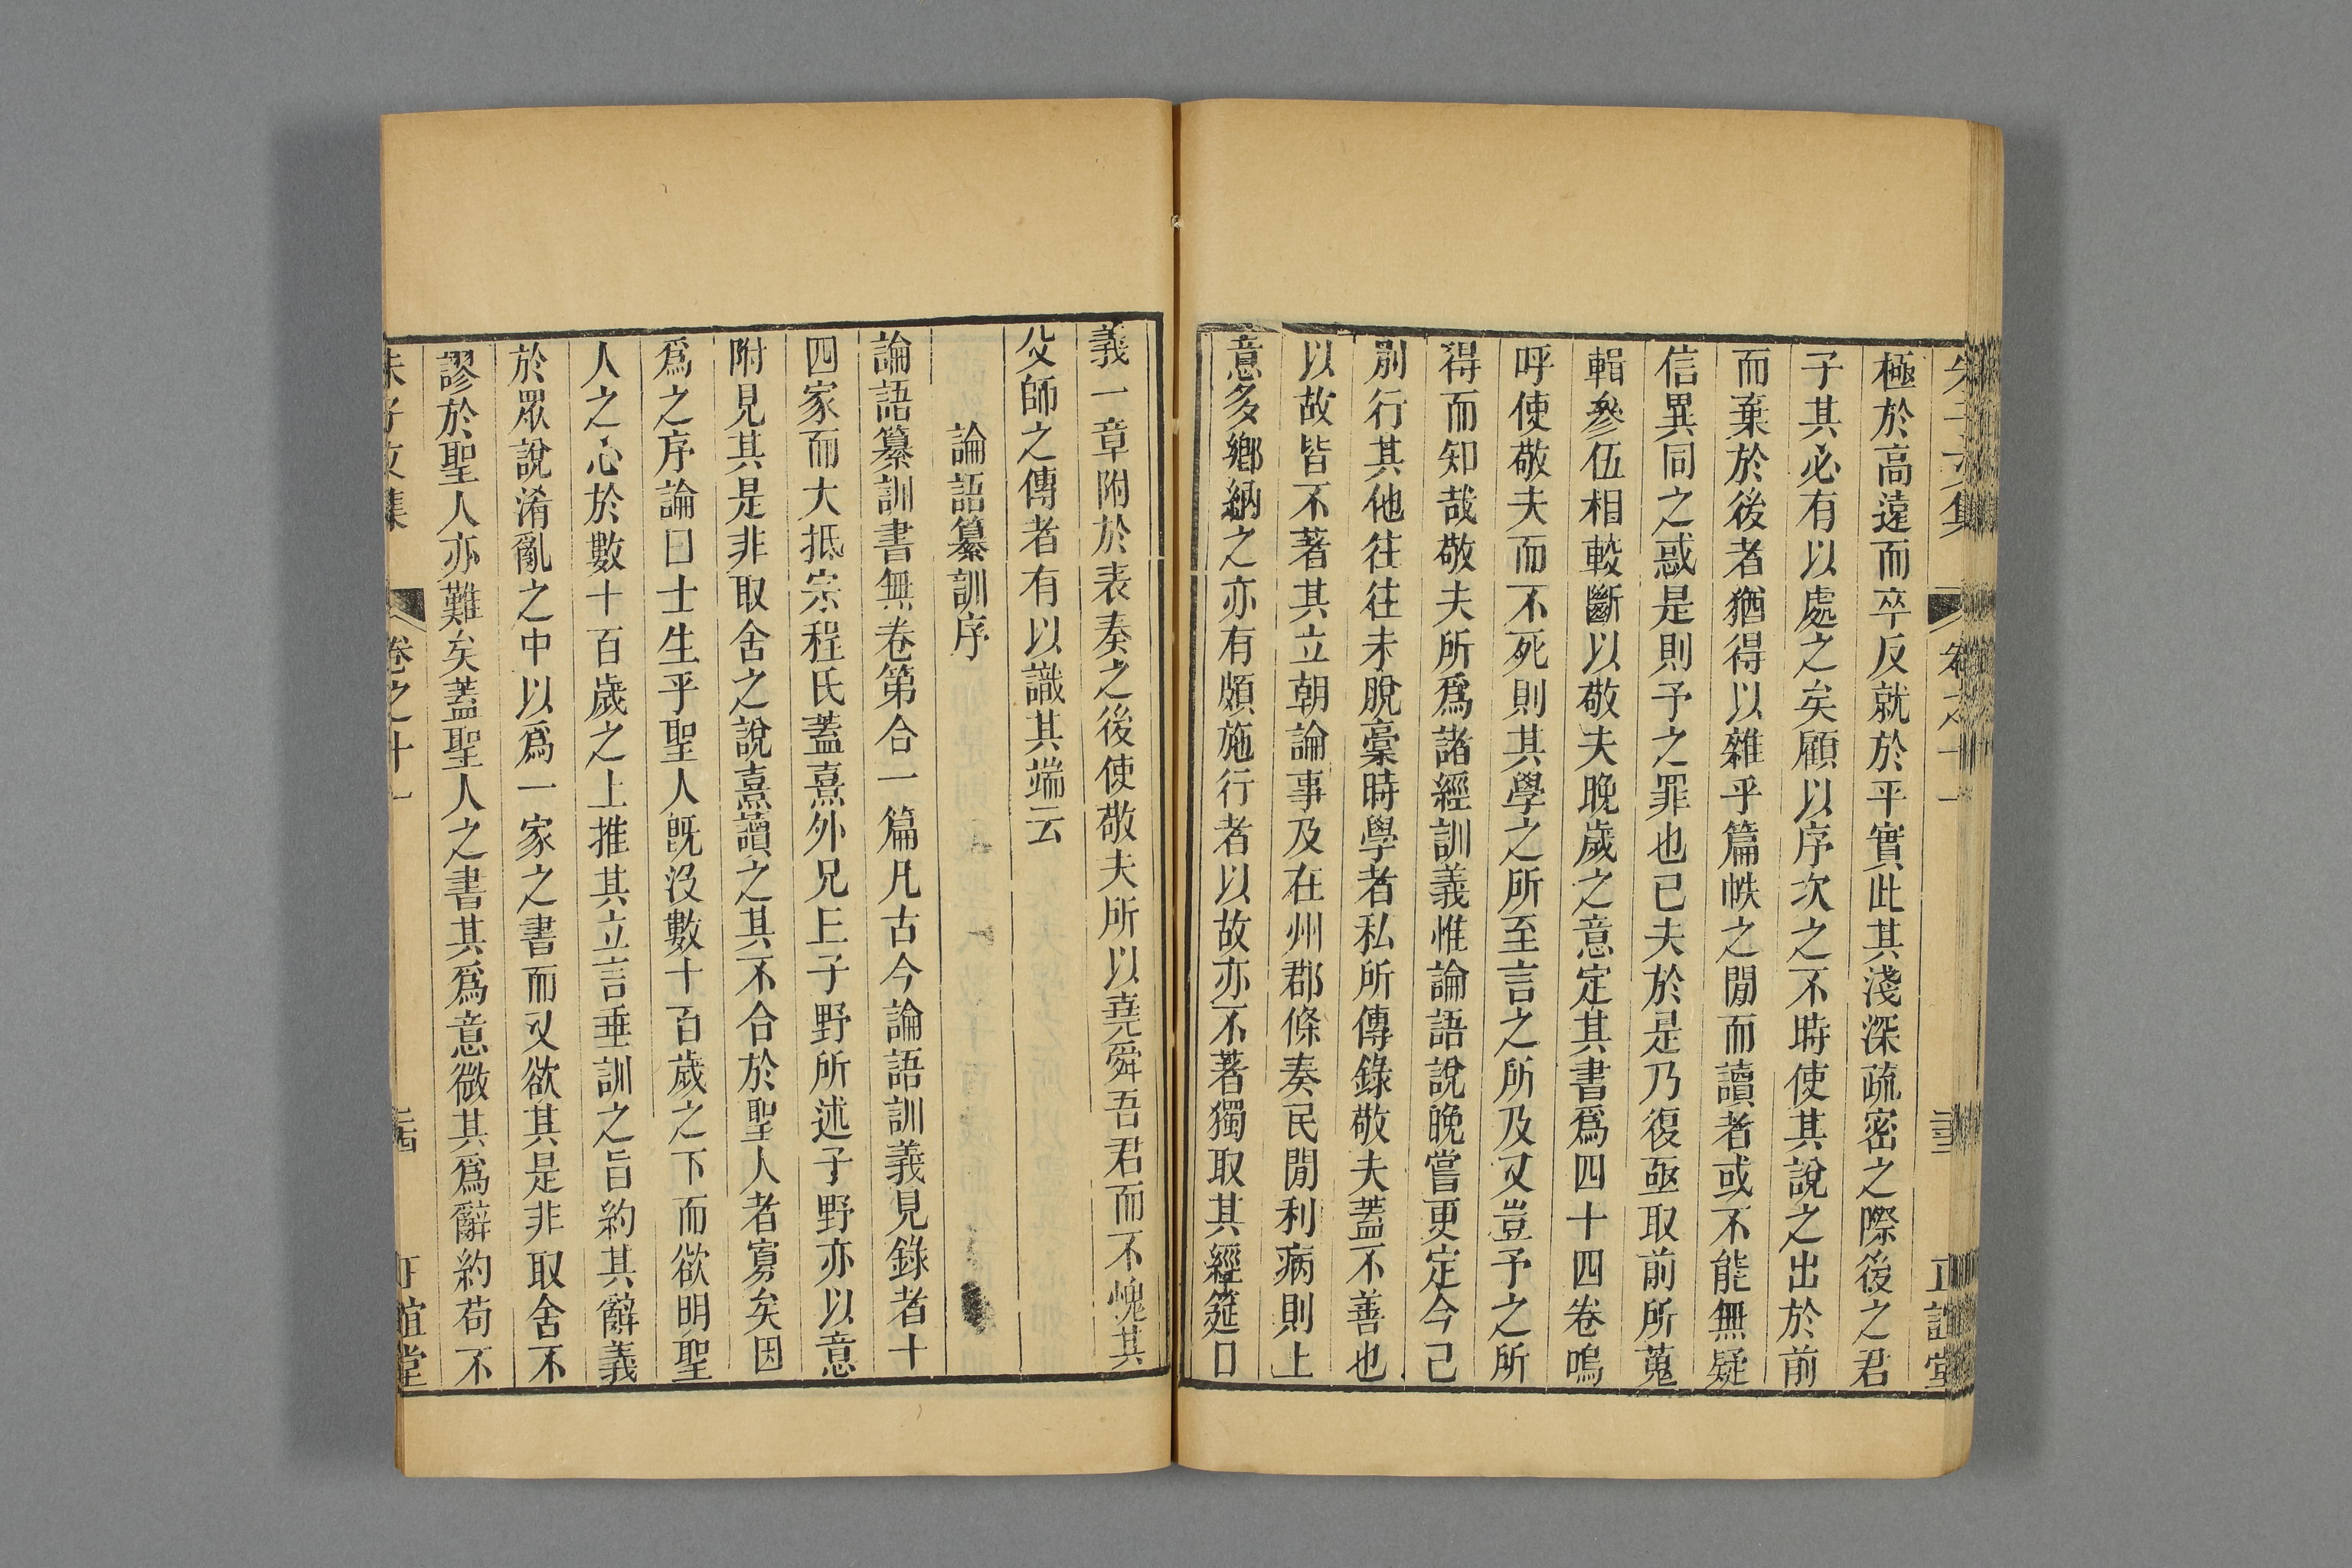 極於高遠而卒反就於平實此其淺深疏密之際後之君
子其必有以處之矣顧以序次之不時使其說之出於前
而棄於後者猶得以雜乎篇帙之閒而讀者或不能無疑
信異同之惑是則予之罪也已夫於是乃復亟取前所蒐
輯參伍相較斷以敬夫晚歲之意定其書爲四十四卷嗚
呼使敬夫而不死則其學之所至言之所及又豈予之所
得而知哉敬夫所爲諸經訓義惟論語說晚嘗更定今已
別行其他往往未脫稾時學者私所傳錄敬夫蓋不善也
以故皆不著其立朝論事及在州郡條奏民閒利病則上
意多鄉納之亦有頗施行者以故亦不著獨取其經筵口
義一章附於表奏之後使敬夫所以堯舜吾君而不愧其
父師之傳者有以識其端云
論語纂訓序
論語纂訓書無卷第合一篇凡古今論語訓義見錄者十
四家而大抵宗程氏蓋熹外兄丘子野所述子野亦以意
附見其是非取舍之說熹讀之其不合於聖人者寡矣因
爲之序論曰士生乎聖人旣沒數十百歲之下而欲明聖
人之心於數十百歲之上推其立言垂訓之旨約其辭義
於眾說淆亂之中以爲一家之書而又欲其是非取舍不
謬於聖人亦難矣蓋聖人之書其爲意微其爲辭約苟不
朱子文集 卷之十一